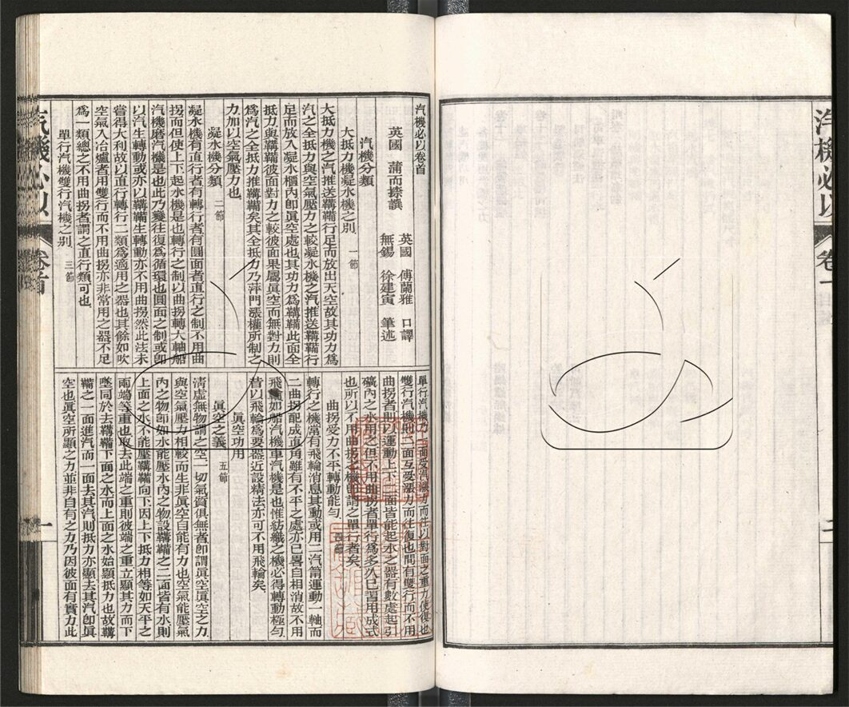 汽機必以卷首
英國 蒲而捺譔
英國 傅蘭雅 口譯
無錫 徐建寅 筆述
汽機分類
大抵力機凝水機之別 一節
大抵力機之汽推送鞲鞴行足而放出天空故其功力爲
汽之全抵力與空氣壓力之較凝水機之汽推送鞲鞴行
足而放入凝水櫃內卽眞空處也其功力爲鞲鞴此面全
抵力與鞲鞴彼面對力之較彼面果屬眞空而無對力則
爲汽之全抵力推鞲鞴矣其全抵力乃萍門漲權所制之
力加以空氣壓力也
凝水機分類 二節
凝水機有直行者有轉行者有圓面者直行之制不用曲
拐而但使上下起水機是也轉行之制以曲拐轉大軸船
汽機磨汽機是也此乃變往復爲循環也圓面之制或卽
以汽生轉動或亦以鞲鞴生轉動亦不用曲拐然此法未
嘗得大利故以直行轉行二類爲適用之器也其餘如吹
空氣入冶爐者用雙行而不用曲拐亦非常用之器不足
爲一類總之不用曲拐者謂之直行類可也
單行汽機雙行汽機之別 三節
曲拐者用以運動上下二面皆能起水之器有數處起引
礦內之水用之但不用曲拐者單行爲多久已習用成式
也所以不用曲拐之機俱謂之單行者矣
曲拐受力不平轉動能勻 四節
轉行之機常有飛輪消息其動或用二汽筩運動一軸而
二曲拐配成直角雖有不平之處亦已畧自相消故不用
飛輪如船汽機車汽機是也惟紡織之機必得轉動極勻
昔以飛輪爲要器近設精法亦可不用飛輪矣
眞空功用
眞空之義 五節
淸虛無物謂之空一切氣質俱無者卽謂眞空眞空之力
與空氣壓力相較而生非眞空自能有力也空氣能壓氣
內之物卽如水能壓水內之物設鞲鞴之二面皆有水則
上面之水不能壓鞲鞴向下因上下抵力相等如天平之
兩端等重也取去此端之重則彼端之重立顯其力而下
墜同於去鞲鞴下面之水而上面之水始顯抵力也故鞲
鞴之一面進汽而一面去其汽則抵力亦顯去其汽卽眞
空也眞空所顯之力並非自有之力乃因彼面有實力此
汽機必以
卷首
一